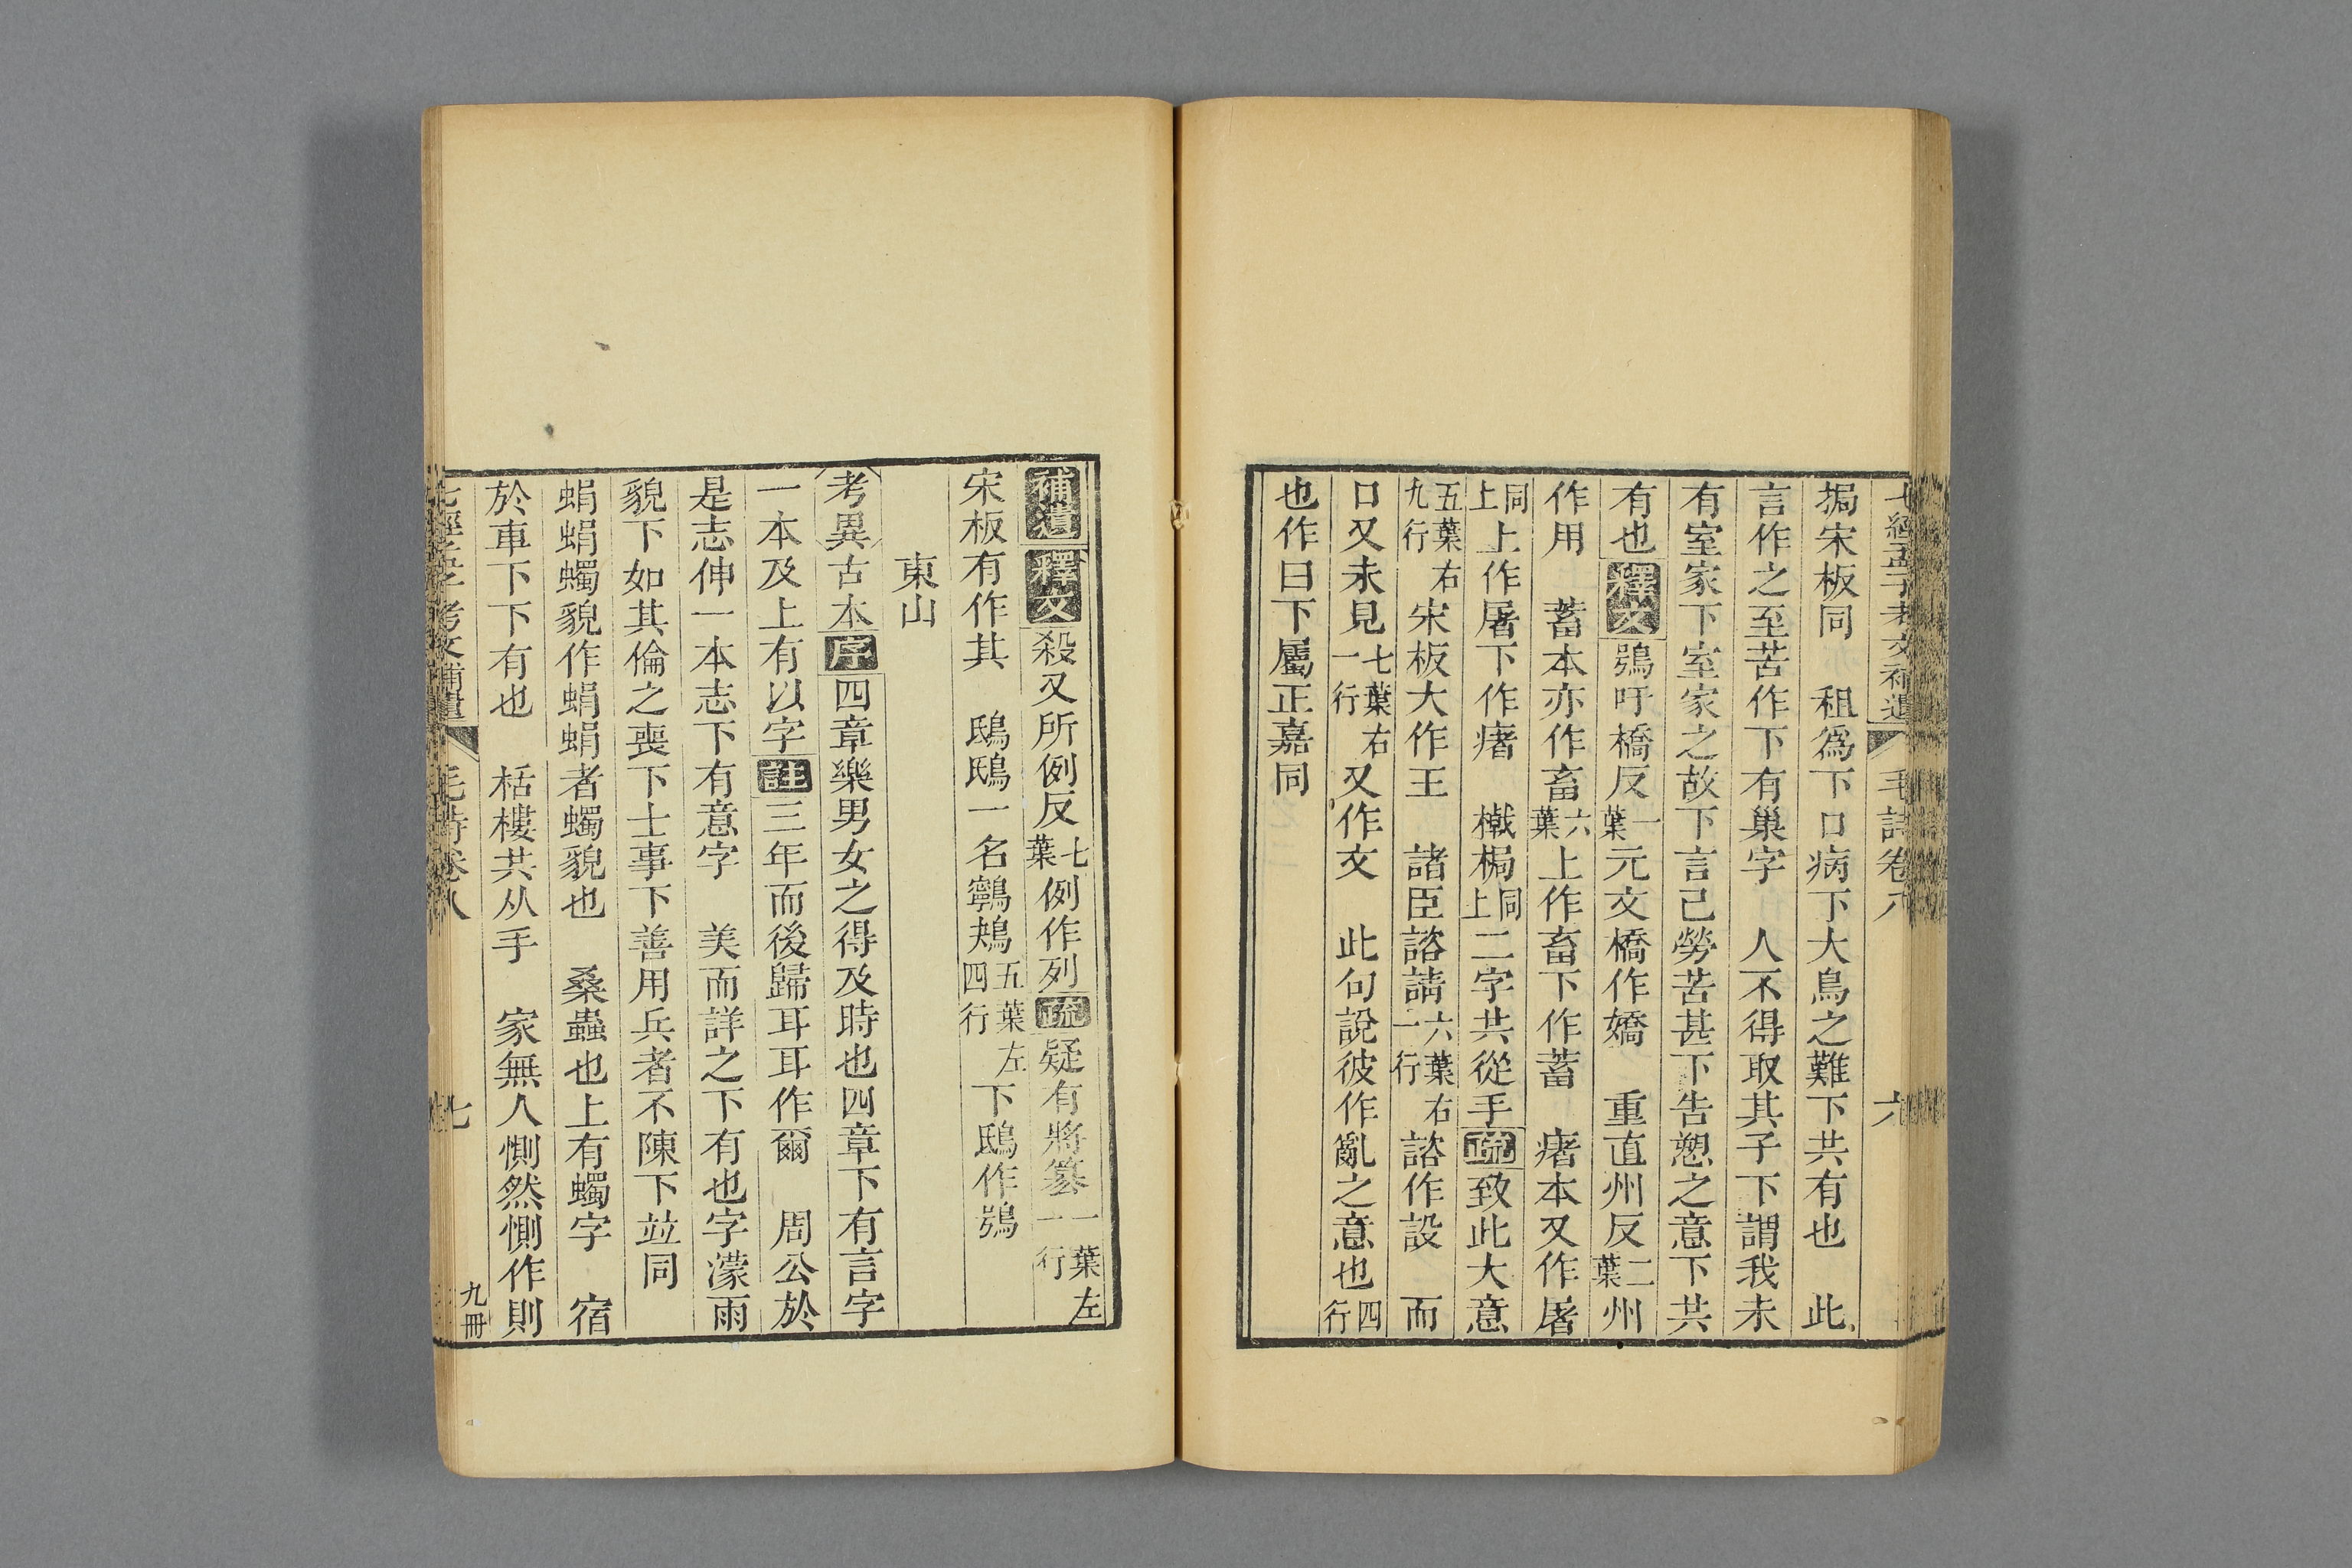 七經孟子考文補遺 毛詩卷八 六
挶宋板同 租爲下口病下大鳥之難下共有也 此
言作之至苦作下有巢字 人不得取其子下謂我未
有室家下室家之故下言己勞苦甚下告愬之意下共
有也釋文鴞吁橋反一葉元文橋作嬌 重直州反二葉州
作用 蓄本亦作畜六葉上作畜下作蓄 瘏本又作屠
同上上作屠下作瘏 檝梮同上二字共從手疏致此大意
五葉右九行宋板大作王 諸臣諮請六葉右一行諮作設 而
口又未見七葉右一行又作文 此句說彼作亂之意也四行
也作曰下屬正嘉同
補遺釋文殺又所例反七葉例作列疏疑有將篡一葉左一行
宋板有作其 鴟鴟一名鸋鴂五葉左四行下鴟作鴞
東山
考異古本序四章樂男女之得及時也四章下有言字
一本及上有以字註三年而後歸耳耳作爾 周公於
是志伸一本志下有意字 美而詳之下有也字濛雨
貌下如其倫之喪下士事下善用兵者不陳下竝同
蜎蜎蠋貌作蜎蜎者蠋貌也 桑蟲也上有蠋字 宿
於車下下有也 栝樓共从手 家無人惻然惻作則
七經孟子考文補遺 毛詩卷八 七 九冊